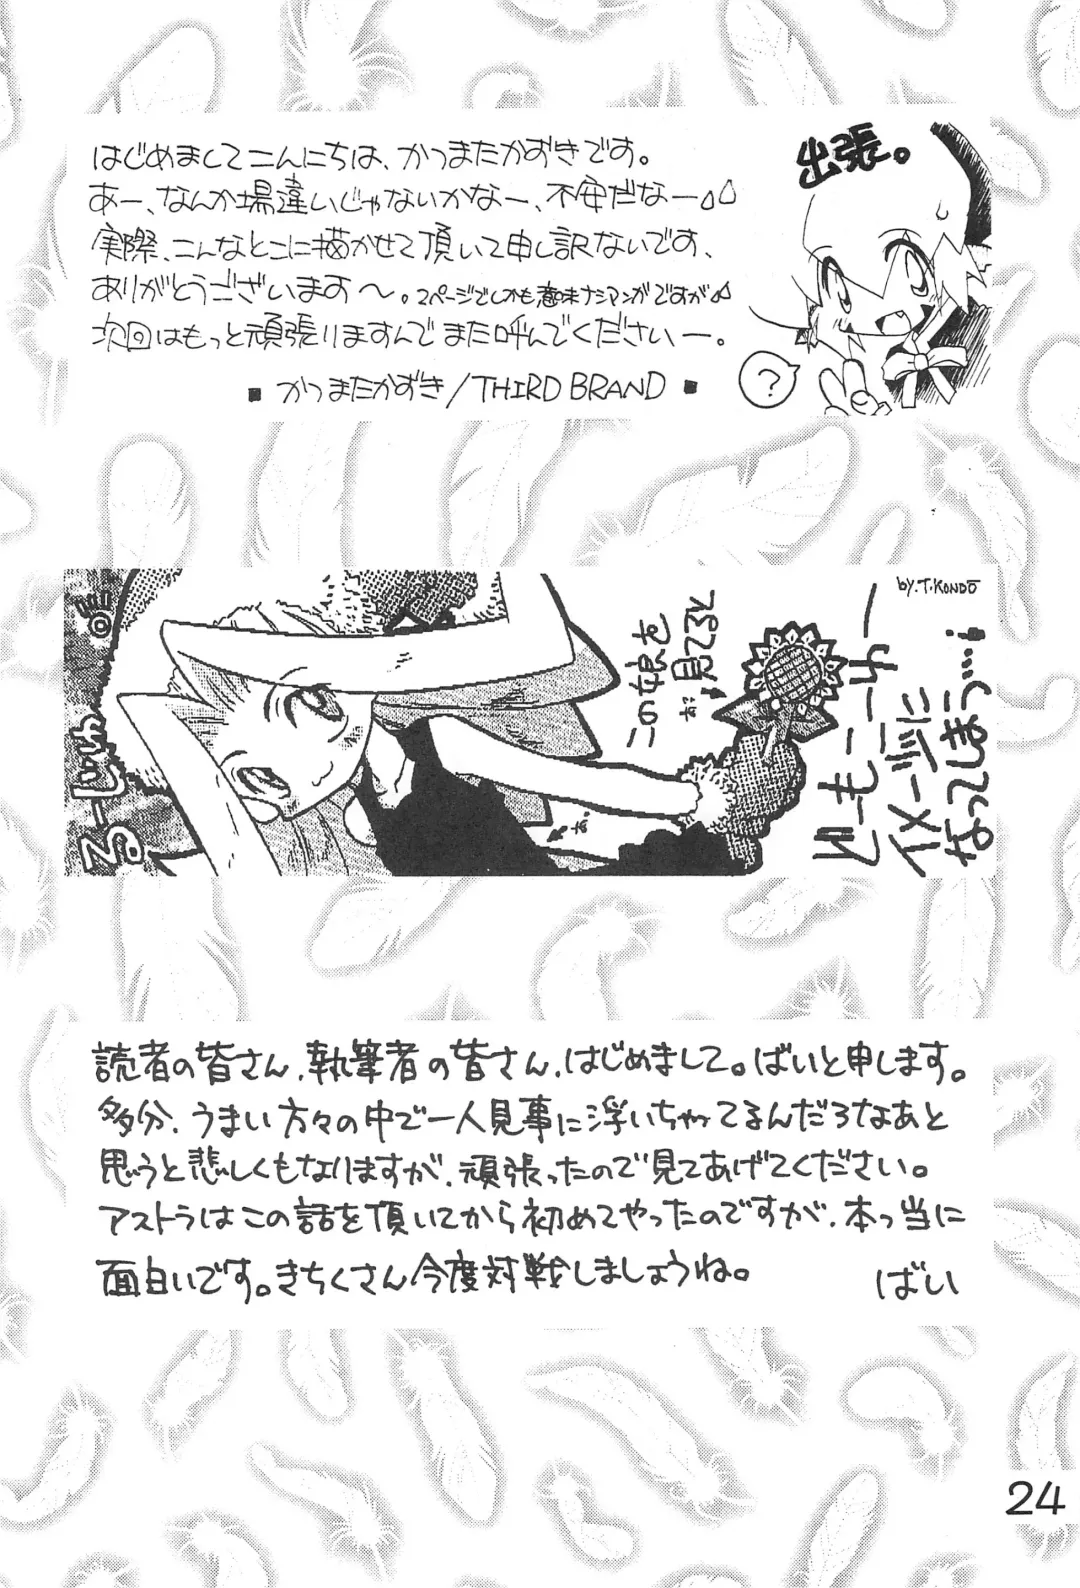 はじめましてこんにちは、かつまたかずきです。
あー、なんか場違いじゃないかなー、不安だなー
実際、こんなとこに描かせて頂いて申し訳ないです、
ありがとうございます〜。2ページでしかも意味ナシマンガですが
次回はもっと頑張りますんでまた呼んでくださいー。
■ かつまたかずき/THIRD BRAND ■
出張。
?
by.T.KONDŌ
この娘を
見てると
どーもーー
イメージに
なってしまう…!
読者の皆さん、執筆者の皆さん、はじめまして。ばいと申します。
多分、うまい方々の中で一人見事に浮いちゃってるんだろなあと
思うと悲しくもなりますが、頑張ったので見てあげてください。
アストラはこの話を頂いてから初めてやったのですが、本っ当に
面白いです。きちくさん今度対戦しましょうね。
ばい
24